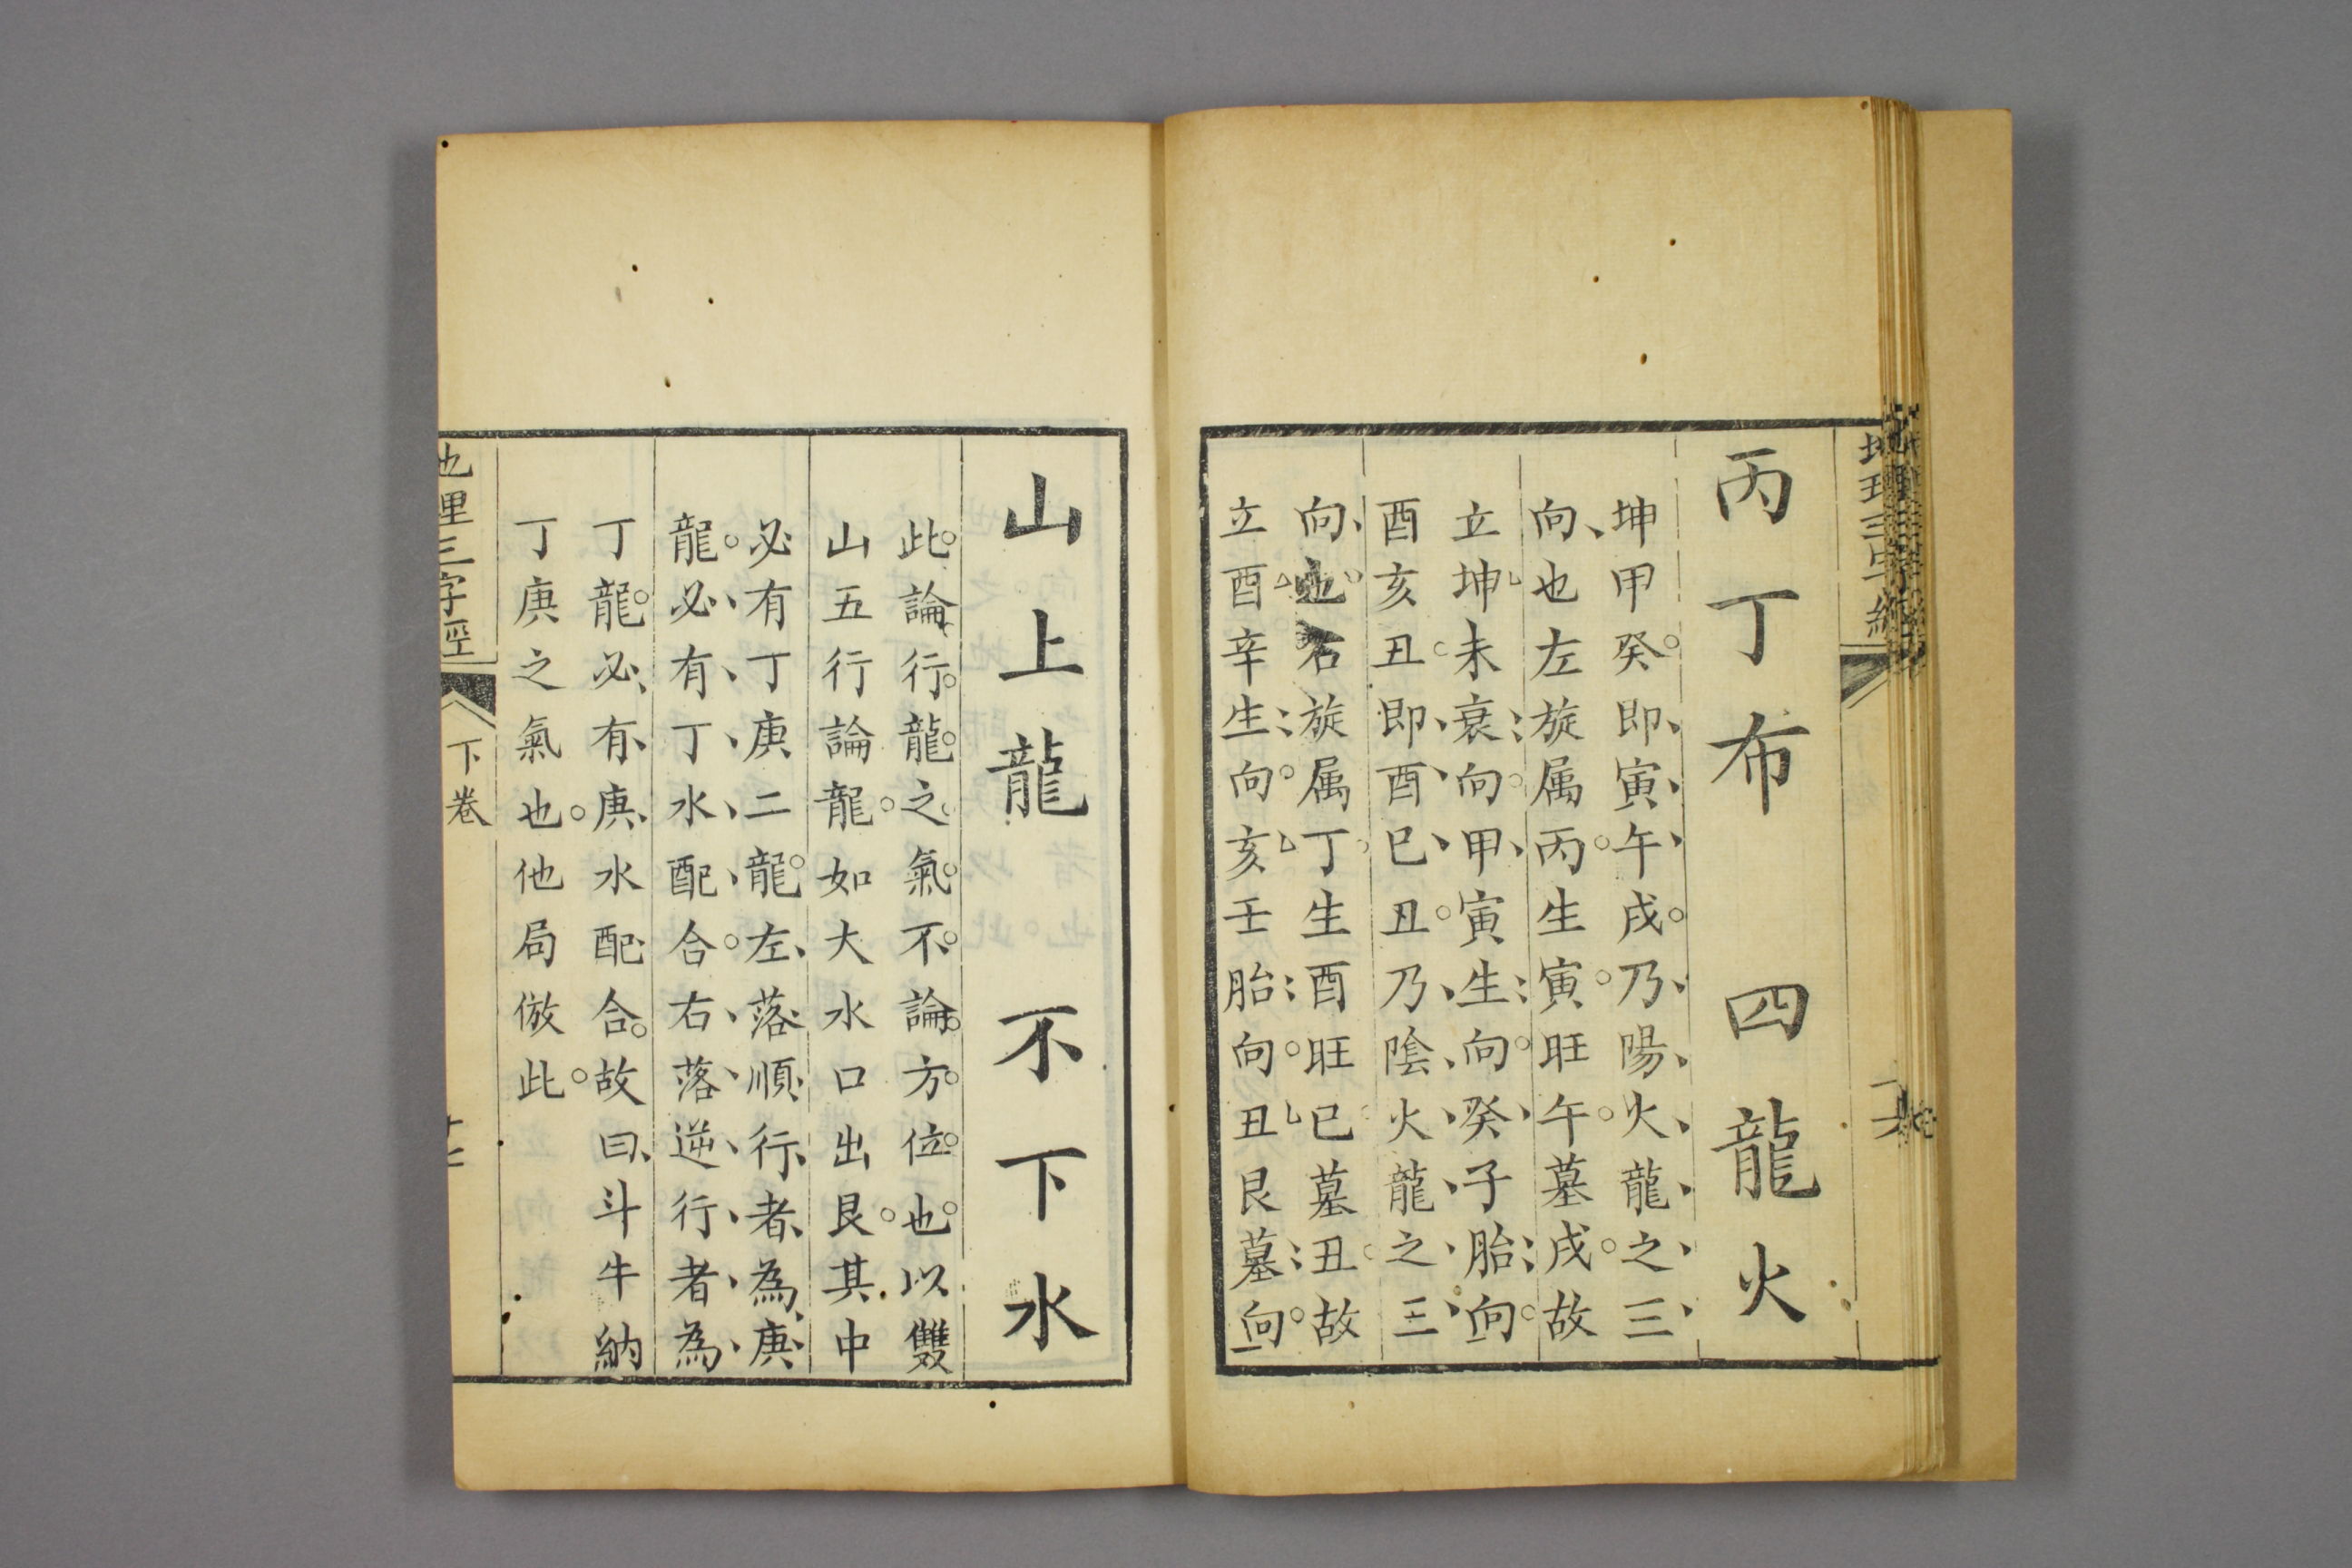 丙丁布 四龍火
坤甲癸即寅午戌乃陽火龍之三
向也左旋属丙生寅旺午墓戌故
立坤未衰向甲寅生向癸子胎向
酉亥丑即酉巳丑乃陰火龍之三
向也右旋属丁生酉旺巳墓丑故
立酉辛生向亥壬胎向丑艮墓向
山上龍 不下水
此論行龍之氣不論方位也以雙
山五行論龍如大水口出艮其中
必有丁庚二龍左落順行者為庚
龍必有丁水配合右落逆行者為
丁龍必有庚水配合故曰斗牛納
丁庚之氣也他局倣此
地理三字經
下卷